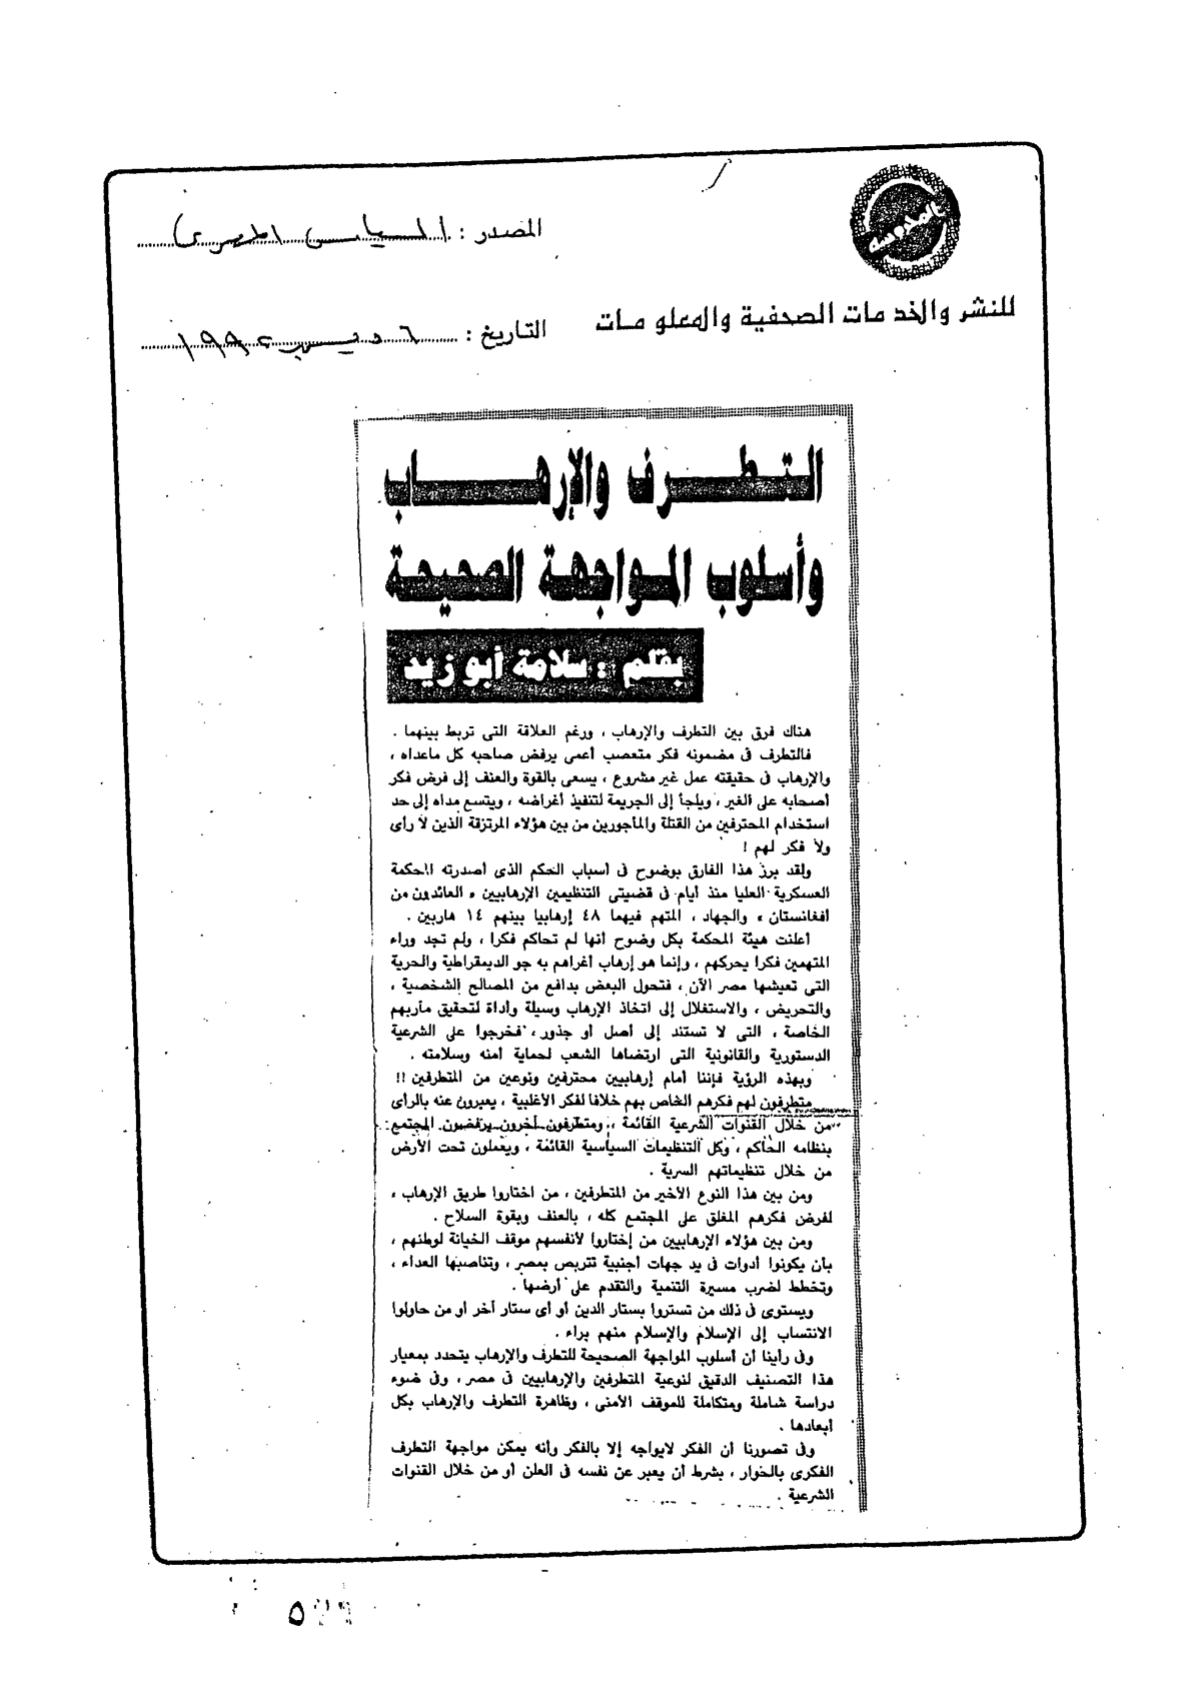 المصدر : السياسى المصرى
للنشر والخدمات الصحفية والمعلومات
التاريخ : ٦ ديسمبر ١٩٩٢
التطرف والإرهاب
وأسلوب المواجهة الصحيحة
بقلم : سلامة أبو زيد
هناك فرق بين التطرف والإرهاب ، ورغم العلاقة التى تربط بينهما .
فالتطرف فى مضمونه فكر متعصب أعمى يرفض صاحبه كل ماعداه ،
والإرهاب فى حقيقته عمل غير مشروع ، يسعى بالقوة والعنف إلى فرض فكر
أصحابه على الغير ، ويلجأ إلى الجريمة لتنفيذ أغراضه ، ويتسع مداه إلى حد
استخدام المحترفين من القتلة والمأجورين من بين هؤلاء المرتزقة الذين لا رأى
ولا فكر لهم !
ولقد برز هذا الفارق بوضوح فى أسباب الحكم الذى أصدرته المحكمة
العسكرية العليا منذ أيام فى قضيتى التنظيمين الإرهابيين « العائدون من
أفغانستان » والجهاد ، المتهم فيهما ٤٨ إرهابيا بينهم ١٤ هاربين .
أعلنت هيئة المحكمة بكل وضوح أنها لم تحاكم فكرا ، ولم تجد وراء
المتهمين فكرا يحركهم ، وإنما هو إرهاب أغراهم به جو الديمقراطية والحرية
التى تعيشها مصر الآن ، فتحول البعض بدافع من المصالح الشخصية ،
والتحريض ، والاستغلال إلى اتخاذ الإرهاب وسيلة وأداة لتحقيق مآربهم
الخاصة ، التى لا تستند إلى أصل أو جذور ، فخرجوا على الشرعية
الدستورية والقانونية التى ارتضاها الشعب لحماية أمنه وسلامته .
وبهذه الرؤية فإننا أمام إرهابيين محترفين ونوعين من المتطرفين !!
متطرفون لهم فكرهم الخاص بهم خلافا لفكر الأغلبية ، يعبرون عنه بالرأى
من خلال القنوات الشرعية القائمة ، ومتطرفون أخرون يرفضون المجتمع
بنظامه الحاكم ، وكل التنظيمات السياسية القائمة ، ويعملون تحت الأرض
من خلال تنظيماتهم السرية .
ومن بين هذا النوع الأخير من المتطرفين ، من اختاروا طريق الإرهاب ،
لفرض فكرهم المغلق على المجتمع كله ، بالعنف وبقوة السلاح .
ومن بين هؤلاء الإرهابيين من إختاروا لأنفسهم موقف الخيانة لوطنهم ،
بأن يكونوا أدوات فى يد جهات أجنبية تتربص بمصر ، وتناصبها العداء ،
وتخطط لضرب مسيرة التنمية والتقدم على أرضها .
ويستوى فى ذلك من تستروا بستار الدين أو أى ستار أخر أو من حاولوا
الانتساب إلى الإسلام والإسلام منهم براء .
وفى رأينا أن أسلوب المواجهة الصحيحة للتطرف والإرهاب يتحدد بمعيار
هذا التصنيف الدقيق لنوعية المتطرفين والإرهابيين فى مصر ، وفى ضوء
دراسة شاملة ومتكاملة للموقف الأمنى ، وظاهرة التطرف والإرهاب بكل
أبعادها .
وفى تصورنا أن الفكر لايواجه إلا بالفكر وأنه يمكن مواجهة التطرف
الفكرى بالحوار ، بشرط أن يعبر عن نفسه فى العلن أو من خلال القنوات
الشرعية .